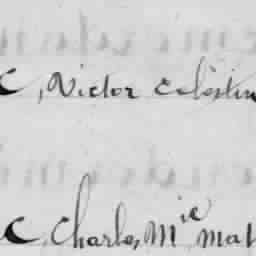 C, Victor Célestin
C, Charles, Mie Mat